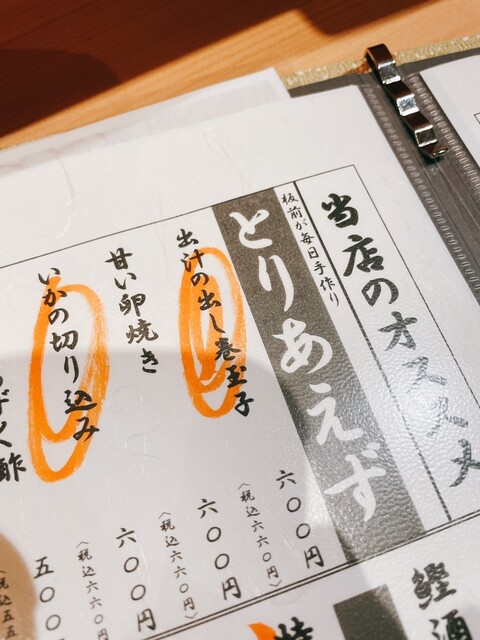 当店のオススメ
板前が毎日手作り
とりあえず
出汁の出し巻玉子 六〇〇円
（税込六六〇円）
甘い卵焼き 六〇〇円
（税込六六〇円）
いかの切り込み 六〇〇円
（税込六六〇円）
ずく酢 五〇〇円
（税込五五
鰹酒